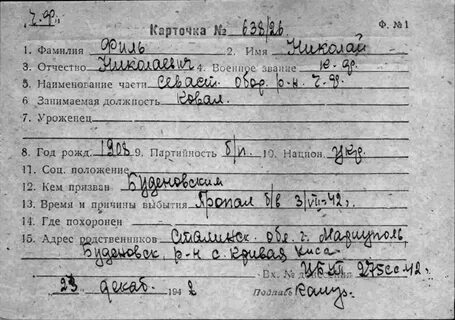 Ч.Ф.
Карточка № 638/26 Ф. №1
1. Фамилия Филь 2. Имя Николай
3. Отчество Николаевич 4. Военное звание к. ф.
5. Наименование части Севаст. обор. р-н. Ч. Ф.
6 Занимаемая должность Ковал.
7. Уроженец
8. Год рожд. 1908 9. Партийность б/п. 10. Национ. укр.
11. Соц. положение
12. Кем призван Буденовским
13. Время и причины выбытия Пропал б/в 3/VII-42 г.
14. Где похоронен
15. Адрес родственников Сталинск. обл. г. Мариуполь
Буденовск. р-н с. Кривая Коса
Вх. № донесения 275сс-42 г.
23 декаб. 1942 Подпись